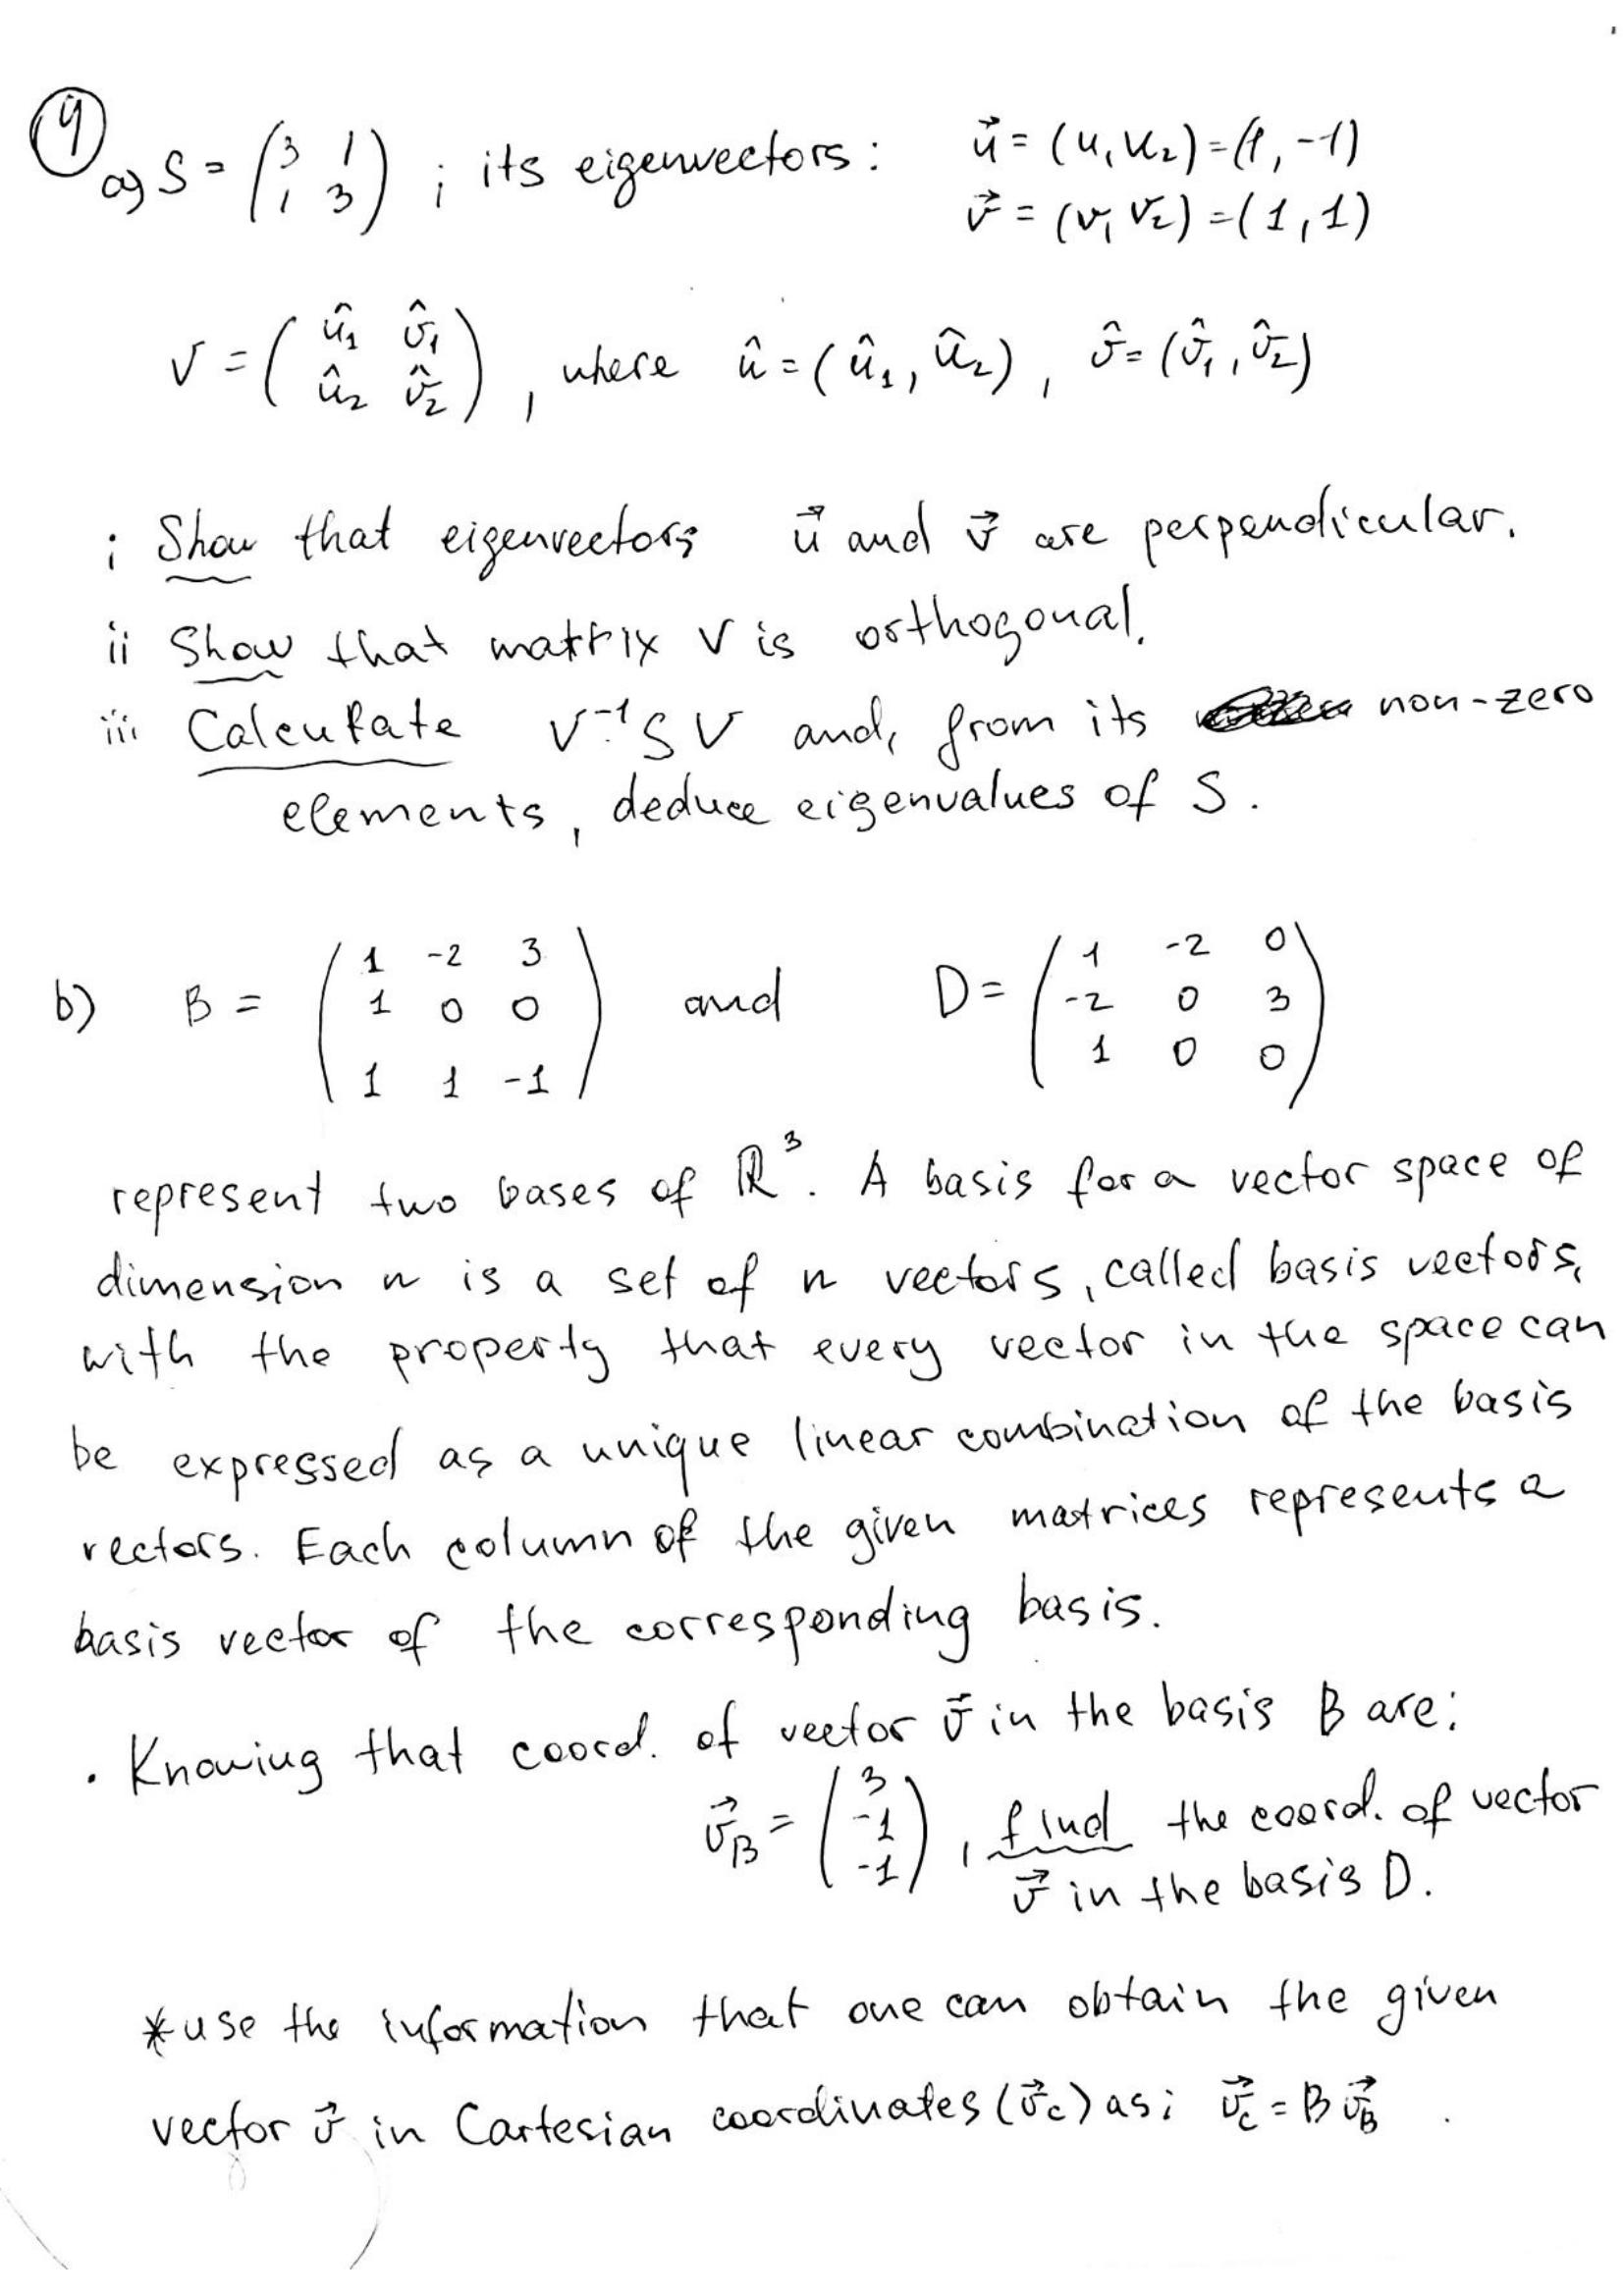 ④
a) S = (3 1; 1 3) ; its eigenvectors: u⃗ = (u₁ u₂) = (1, -1)
v⃗ = (v₁ v₂) = (1, 1)
V = (û₁ v̂₁; û₂ v̂₂), where û = (û₁, û₂), v̂ = (v̂₁, v̂₂)
i Show that eigenvectors u⃗ and v⃗ are perpendicular.
ii Show that matrix V is orthogonal.
iii Calculate V⁻¹SV and, from its non-zero
elements, deduce eigenvalues of S.
b) B = (1 -2 3; 1 0 0; 1 1 -1) and D = (1 -2 0; -2 0 3; 1 0 0)
represent two bases of ℝ³. A basis for a vector space of
dimension n is a set of n vectors, called basis vectors,
with the property that every vector in the space can
be expressed as a unique linear combination of the basis
vectors. Each column of the given matrices represents a
basis vector of the corresponding basis.
. Knowing that coord. of vector v⃗ in the basis B are:
v⃗_B = (3; -1; -1), find the coord. of vector
v⃗ in the basis D.
*use the information that one can obtain the given
vector v⃗ in Cartesian coordinates (v⃗_c) as: v⃗_c = B v⃗_B .